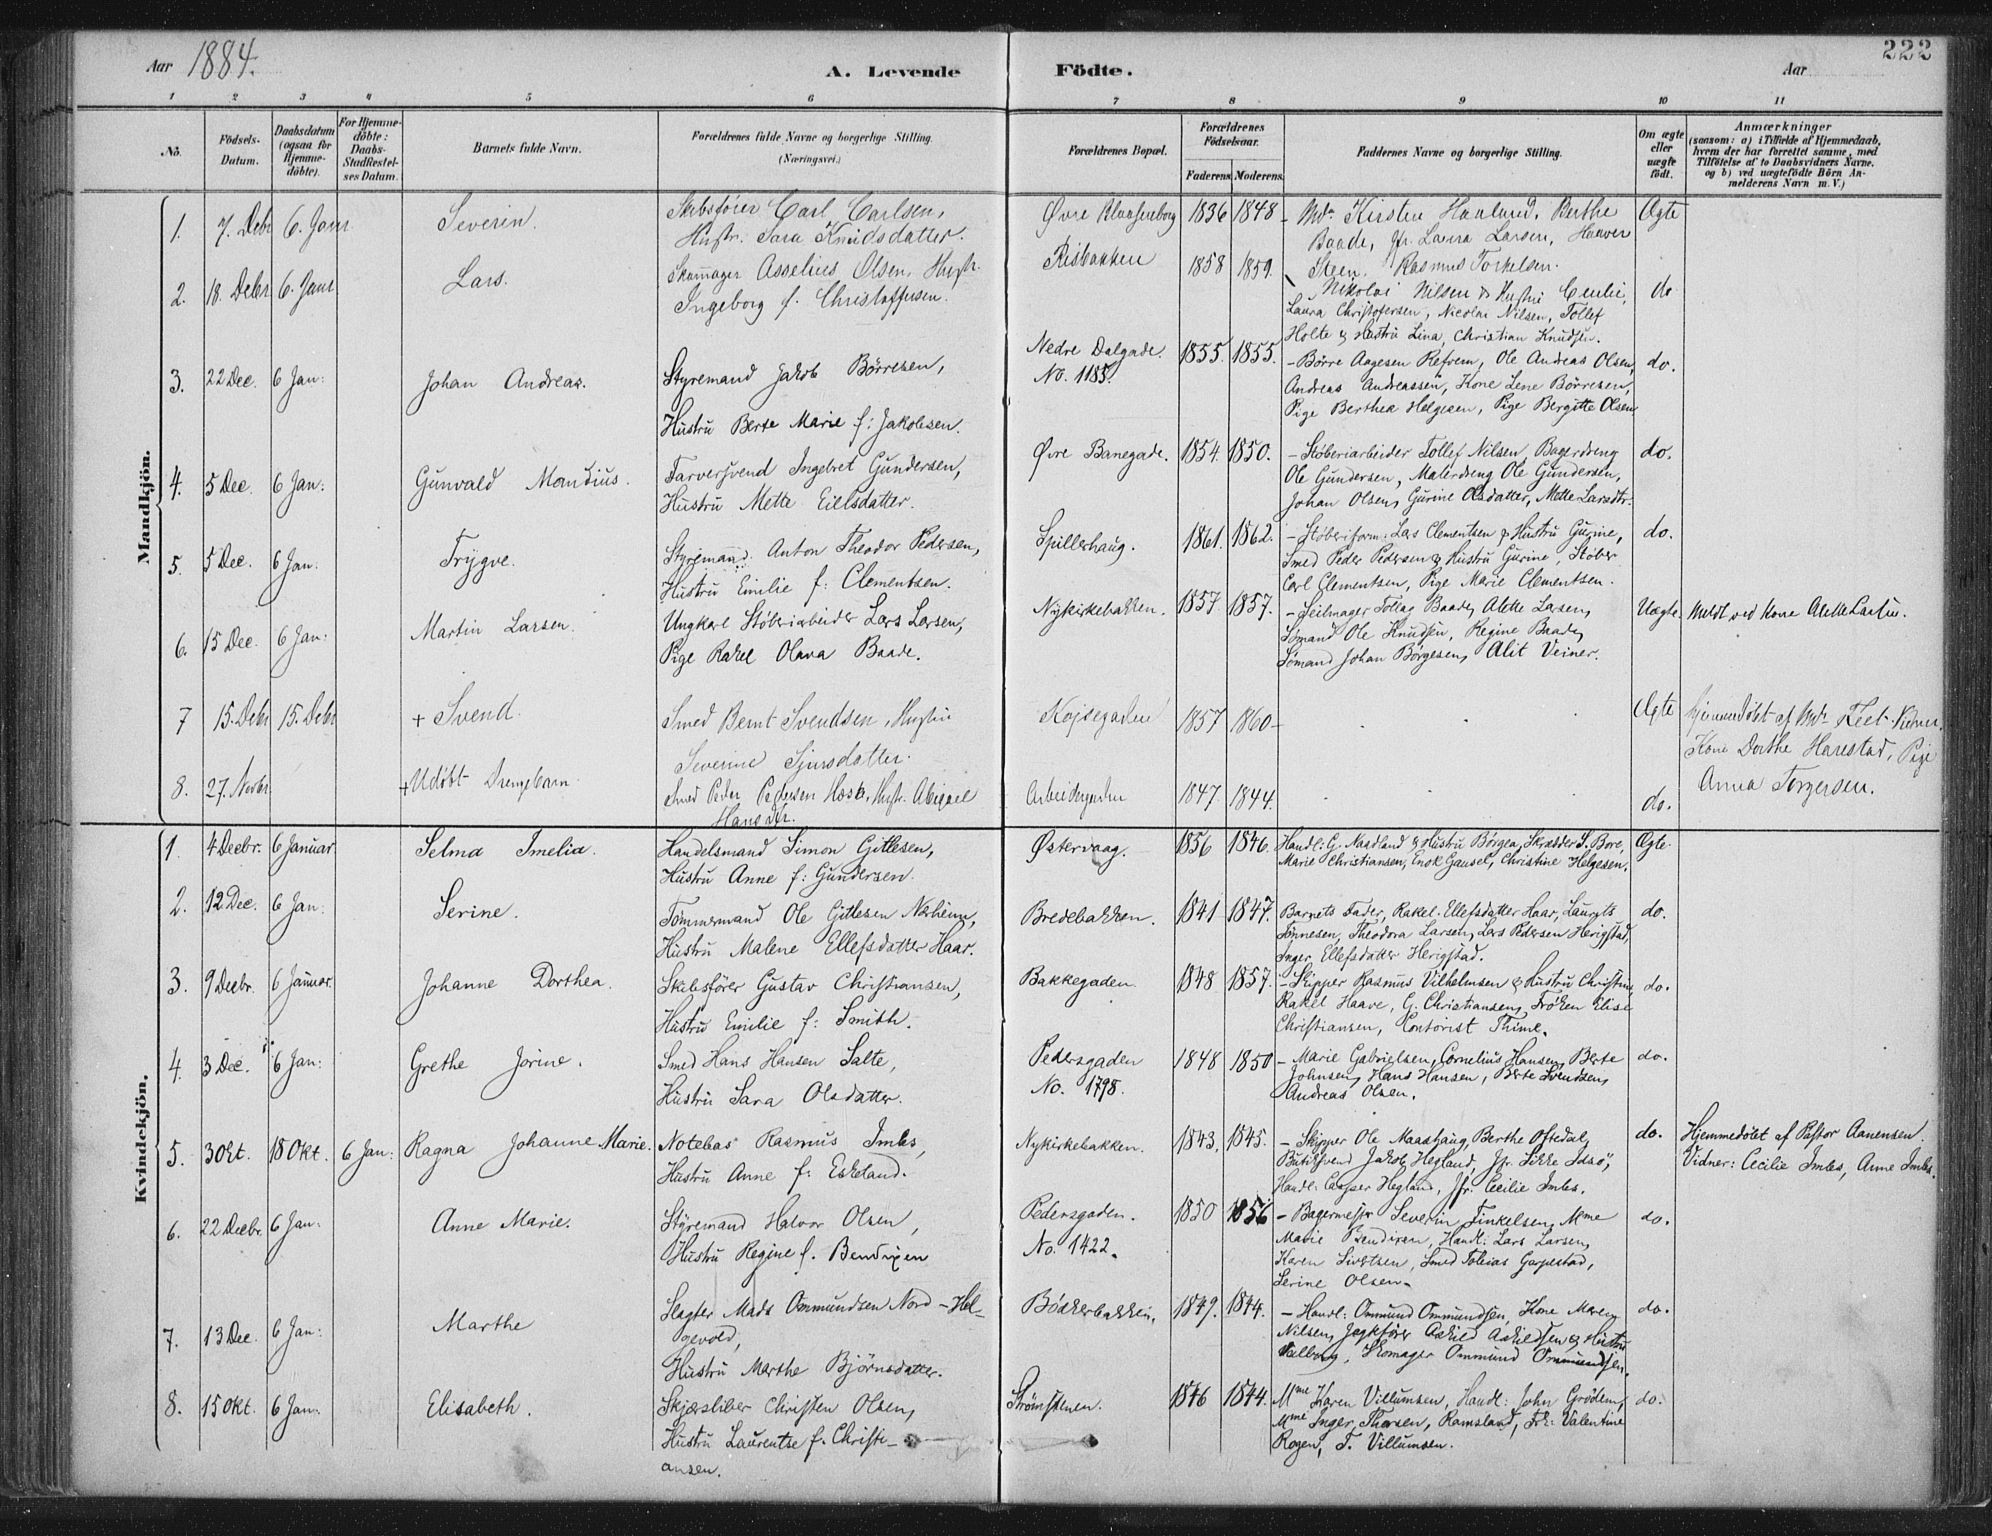 Aar 1884.
A. Levende Födte.
Aar
222
1 2 3 4 5 6 7 8 9 10 11
No. Födsels-Datum. Daabsdatum (ogsaa for Hjemmedöbte). For Hjemmedöbte: Daabs-Stadfæstelses Datum. Barnets fulde Navn. Forældrenes fulde Navne og borgerlige Stilling. (Næringsvei.) Forældrenes Bopæl. Forældrenes Födselsaar. Faderens Moderens. Faddernes Navne og borgerlige Stilling. Om ægte eller uægte födt. Anmærkninger (saasom: a) i Tilfælde af Hjemmedaab, hvem der har forrettet samme, med Tilföielse af to Daabsvidners Navne, og b) ved uægtefödte Börn Anmelderens Navn m. V.)
Mandkjön.
1. 7. Debr 6. Janr Severin. Skibsfører Carl Carlsen, 1836 1848 Kirsten Haaland, Berthe Ægte
Hustr. Sara Knudsdatter. Baade, Jfr. Laura Larsen, Haaver
2. 18. Debr 6. Janr Lars. Skomager Asselius Olsen, Hustr. Risbakken 1858 1859. Steen, Rasmus Torkelsen.
Ingeborg f. Christoffersen. Nikolai Nilsen & Hustru do
Laura Christofersen, Nicolai Nilsen, Tollef
Holte & Hustru Lina, Christian Knudsen.
3. 22 Dec. 6 Jan: Johan Andreas. Styremand Jakob Börresen, Nedre Dalgade. No. 1185. 1855. 1855. – Börre Aagesen Refvem, Ole Andreas Olsen, do.
Andreas Andreassen, Kone Lene Börresen,
Hustru Berte Marie f: Jakobsen. Pige Berthea Helgesen, Pige Bergitte Olsen
4. 5 Dec. 6 Jan: Gunvald Mandius. Farversvend Ingebret Gundersen, Øvre Banegade. 1854. 1850. – Støberiarbeider Tollef Nilsen, Bagerdreng do.
Ole Gundersen, Malerdreng Ole Gundersen,
Hustru Mette Eielsdatter. Johan Olsen, Gurine Olsdatter, Mette Larsdtr.
5. 5 Dec. 6 Jan: Trygve. Styremand Anton Theodor Pedersen, Spillerhaug. 1861. 1862. – Støberiform: Lars Clementsen & Hustru Gurine, do.
Smed Peder Pedersen & Hustru Gurine, Støber
Hustru Emilie f: Clementsen. Carl Clementsen, Pige Marie Clementsen.
6. 15 Dec. 6 Jan: Martin Larsen. Ungkarl Støberiarbeider Lars Larsen, Nykirkebakken. 1857. 1857. – Seilmager Tollag Baade, Alette Larsen, Uægte. Meldt ved Kone Alette
Sømand Ole Knudsen, Regine Baade,
Pige Rakel Olava Baade. Sømand Johan Børgesen, Alit Veiner.
7 15. Debr 15. Debr + Svend. Smed Bernt Svendsen, Hustru Kojsegaden 1857 1860 Ægte Hjemmedøbt af
Severine Sjursdatter. Kone Dorthe Harestad, Pige
Anna Torgersen.
8. 27. Novbr + Udøbt Drengbarn Smed Peder Pedersen Hustr. Abigael Arbeidergaden 1847. 1844. do.
Hansdtr.
Kvindekjön.
1. 4 Decbr. 6 Januar Selma Imelia. Handelsmand Simon Gitlesen, Østervaag. 1856 1846. Handl: G. Naadland & Hustru Børgea, Skrædder S. Bore, Ægte.
Hustru Anne f: Gundersen. Marie Christiansen, Enok Gausel, Christine Helgesen.
2. 12 Dec. 6 Jan: Serine. Tømmermand Ole Gitlesen Norheim, Bredebakken. 1841 1847. Barnets Fader, Rakel Ellefsdatter Haar, Laurits do.
Tönnesen, Theodora Larsen, Lars Pedersen Herigstad,
Hustru Malene Ellefsdatter Haar. Inger Ellefsdatter Herigstad.
3. 9 Decbr. 6 Januar. Johanne Dorthea. Skibsfører Gustav Christiansen, Bakkegaden. 1848 1857. – Skipper Rasmus Vilhelmsen & Hustru Christine, do.
Rakel Haave, G. Christiansen, Frøken Elise
Hustru Emilie f: Smith. Christiansen, Contorist Thime.
4. 3 Dec. 6 Jan: Grethe Jorine. Smed Hans Hansen Salte, Pedersgaden No. 1798. 1848 1850 – Marie Gabrielsen, Cornelius Hansen, Berte do.
Johnsen, Hans Hansen, Berte Svendsen,
Hustru Sara Olsdatter. Andreas Olsen.
5. 3 Okt. 18 Okt. 6 Jan: Ragna Johanne Marie. Notebas Rasmus Imbs, Nykirkebakken. 1843. 1845. – Skipper Ole Maashaug, Berthe Oftedal, do. Hjemmedøbt af Pastor Aanensen.
Butiksvend Jakob Hegland, Jfr. Sikke Idsø, Vidner: Cecilie Imbs, Anne Imbs.
Hustru Anne f: Eskeland. Handl: Casper Hegland, Jfr. Cecilie Imbs.
6. 22 Decbr. 6 Jan: Anne Marie. Styremand Halvor Olsen, Pedersgaden. No. 1422. 1850 1856 – Bagermestr Severin Finkelsen, Mme do.
Marie Bendixen, Handl: Lars Larsen,
Hustru Regine f. Bendixen Karen Sivertsen, Smed Tobias Garpestad,
Serine Olsen.
7. 13 Dec. 6 Jan: Marthe Slagter Mads Ommundsen Nord-Hel- Bødkerbakken. 1849. 1844. – Handl: Ommund Ommundsen, Kone Maren do.
gevold, Nilsen, Jægtfører Askild Askildsen & Hustru
Hustru Marthe Bjørnsdatter. Valborg, Skomager Ommund Ommundsen.
8. 15 Okt. 6 Jan: Elisabeth. Skjærsliber Christen Olsen, Strømstenen. 1846 1844. Mme Karen Villumsen, Handl: John Grödem, do.
Mme Inger Thorsen, Ramsland, Frk: Valentine
Hustru Laurentse f. Christi- Rogen, T. Villumsen.
ansen.